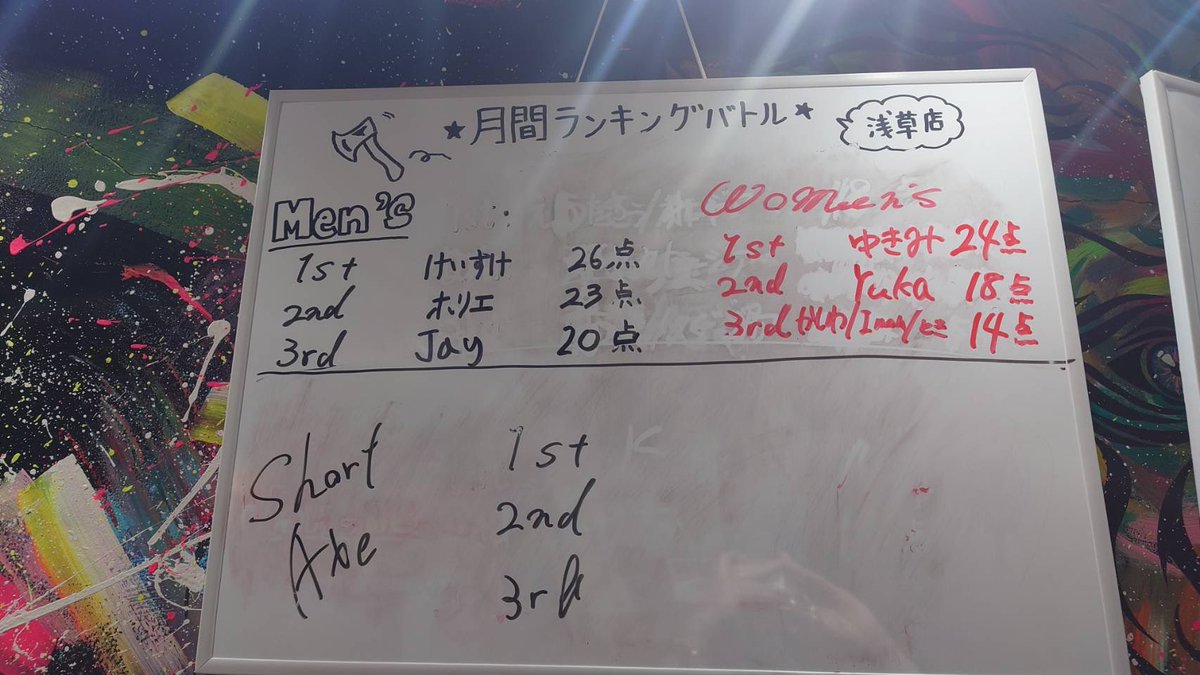 ★月間ランキングバトル★
浅草店
Men's
1st けいすけ 26点
2nd ホリエ 23点
3rd Jay 20点
WOMen's
1st ゆきみ 24点
2nd Yuka 18点
3rd かしわ/ 14点
Short Axe
1st
2nd
3rd